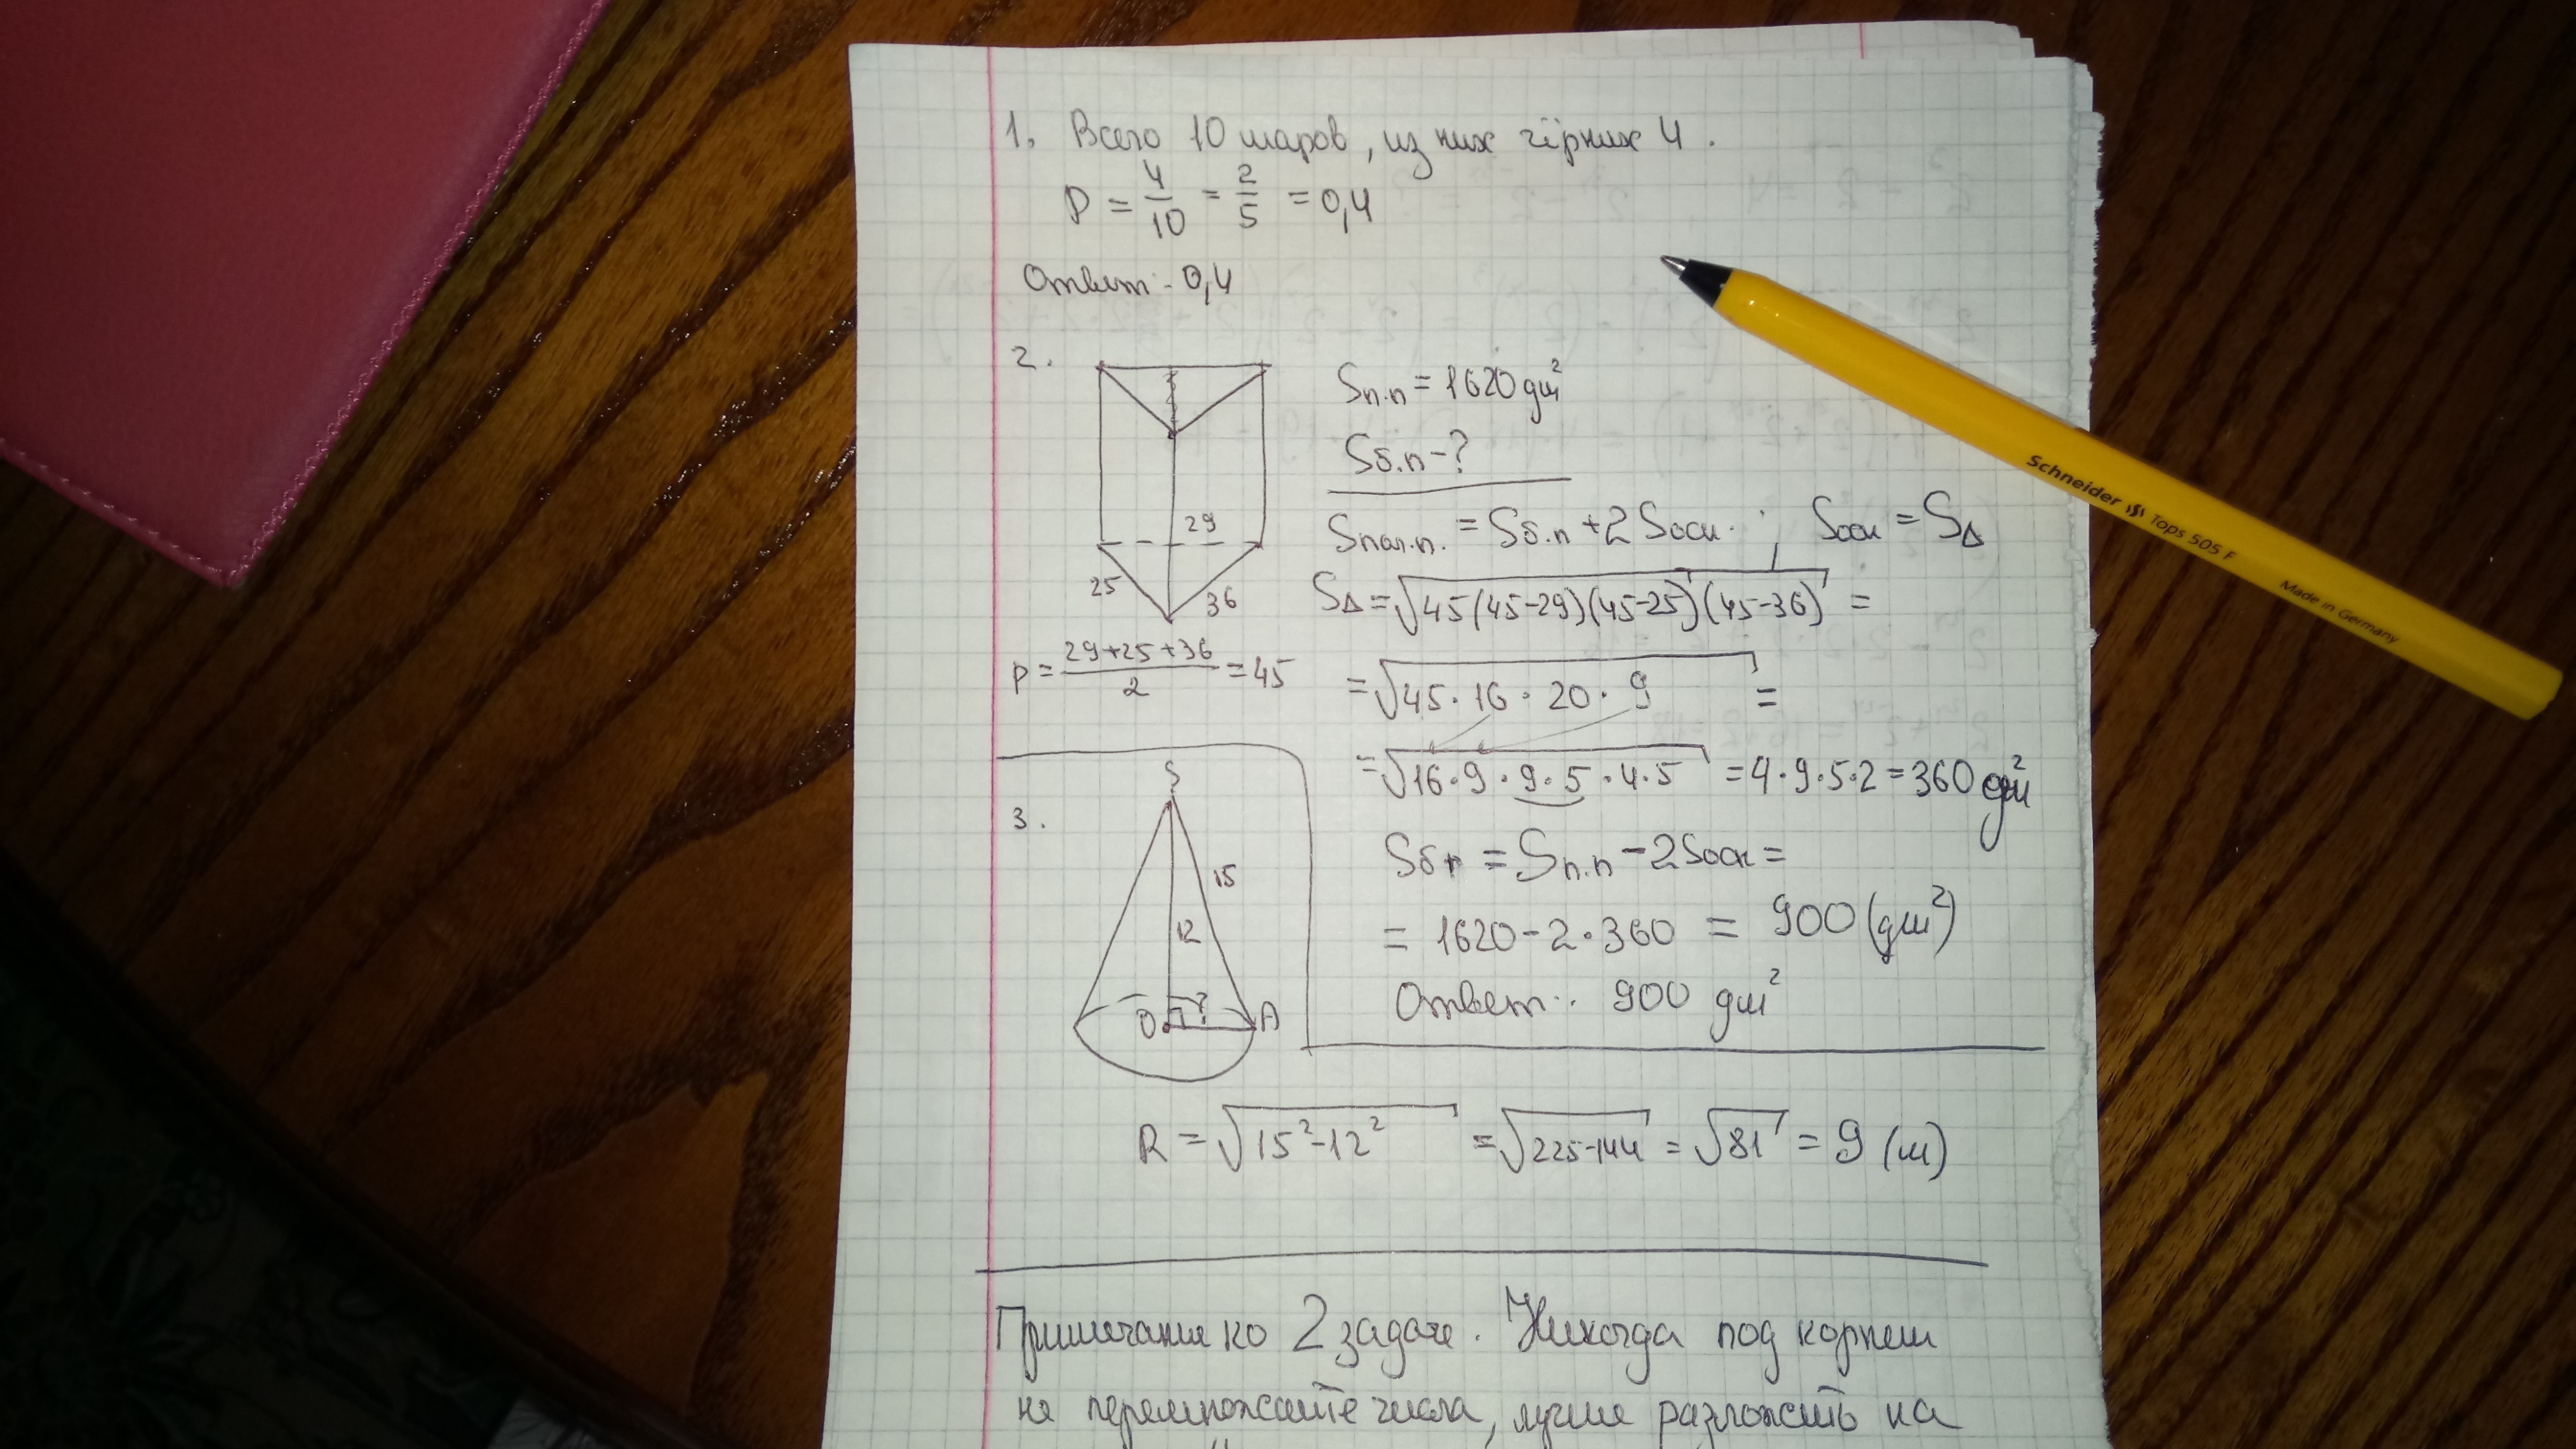 1. Всего 10 шаров, из них чёрных 4.
P = 4/10 = 2/5 = 0,4
Ответ: 0,4
2.
29
25
36
p = (29+25+36)/2 = 45
Sп.п = 1620 дм²
Sб.п - ?
Sпол.п. = Sб.п + 2Sосн. ; Sосн = S△
S△ = √45(45-29)(45-25)(45-36) =
= √45·16·20·9 =
= √16·9·9·5·4·5 = 4·9·5·2 = 360 дм²
Sбп = Sп.п - 2Sосн =
= 1620 - 2·360 = 900 (дм²)
Ответ: 900 дм²
3.
S
15
12
O
?
A
R = √15²-12² = √225-144 = √81 = 9 (м)
Примечание ко 2 задаче. Никогда под корнем
не перемножайте числа, лучше разложить на
Schneider Tops 505 F Made in Germany